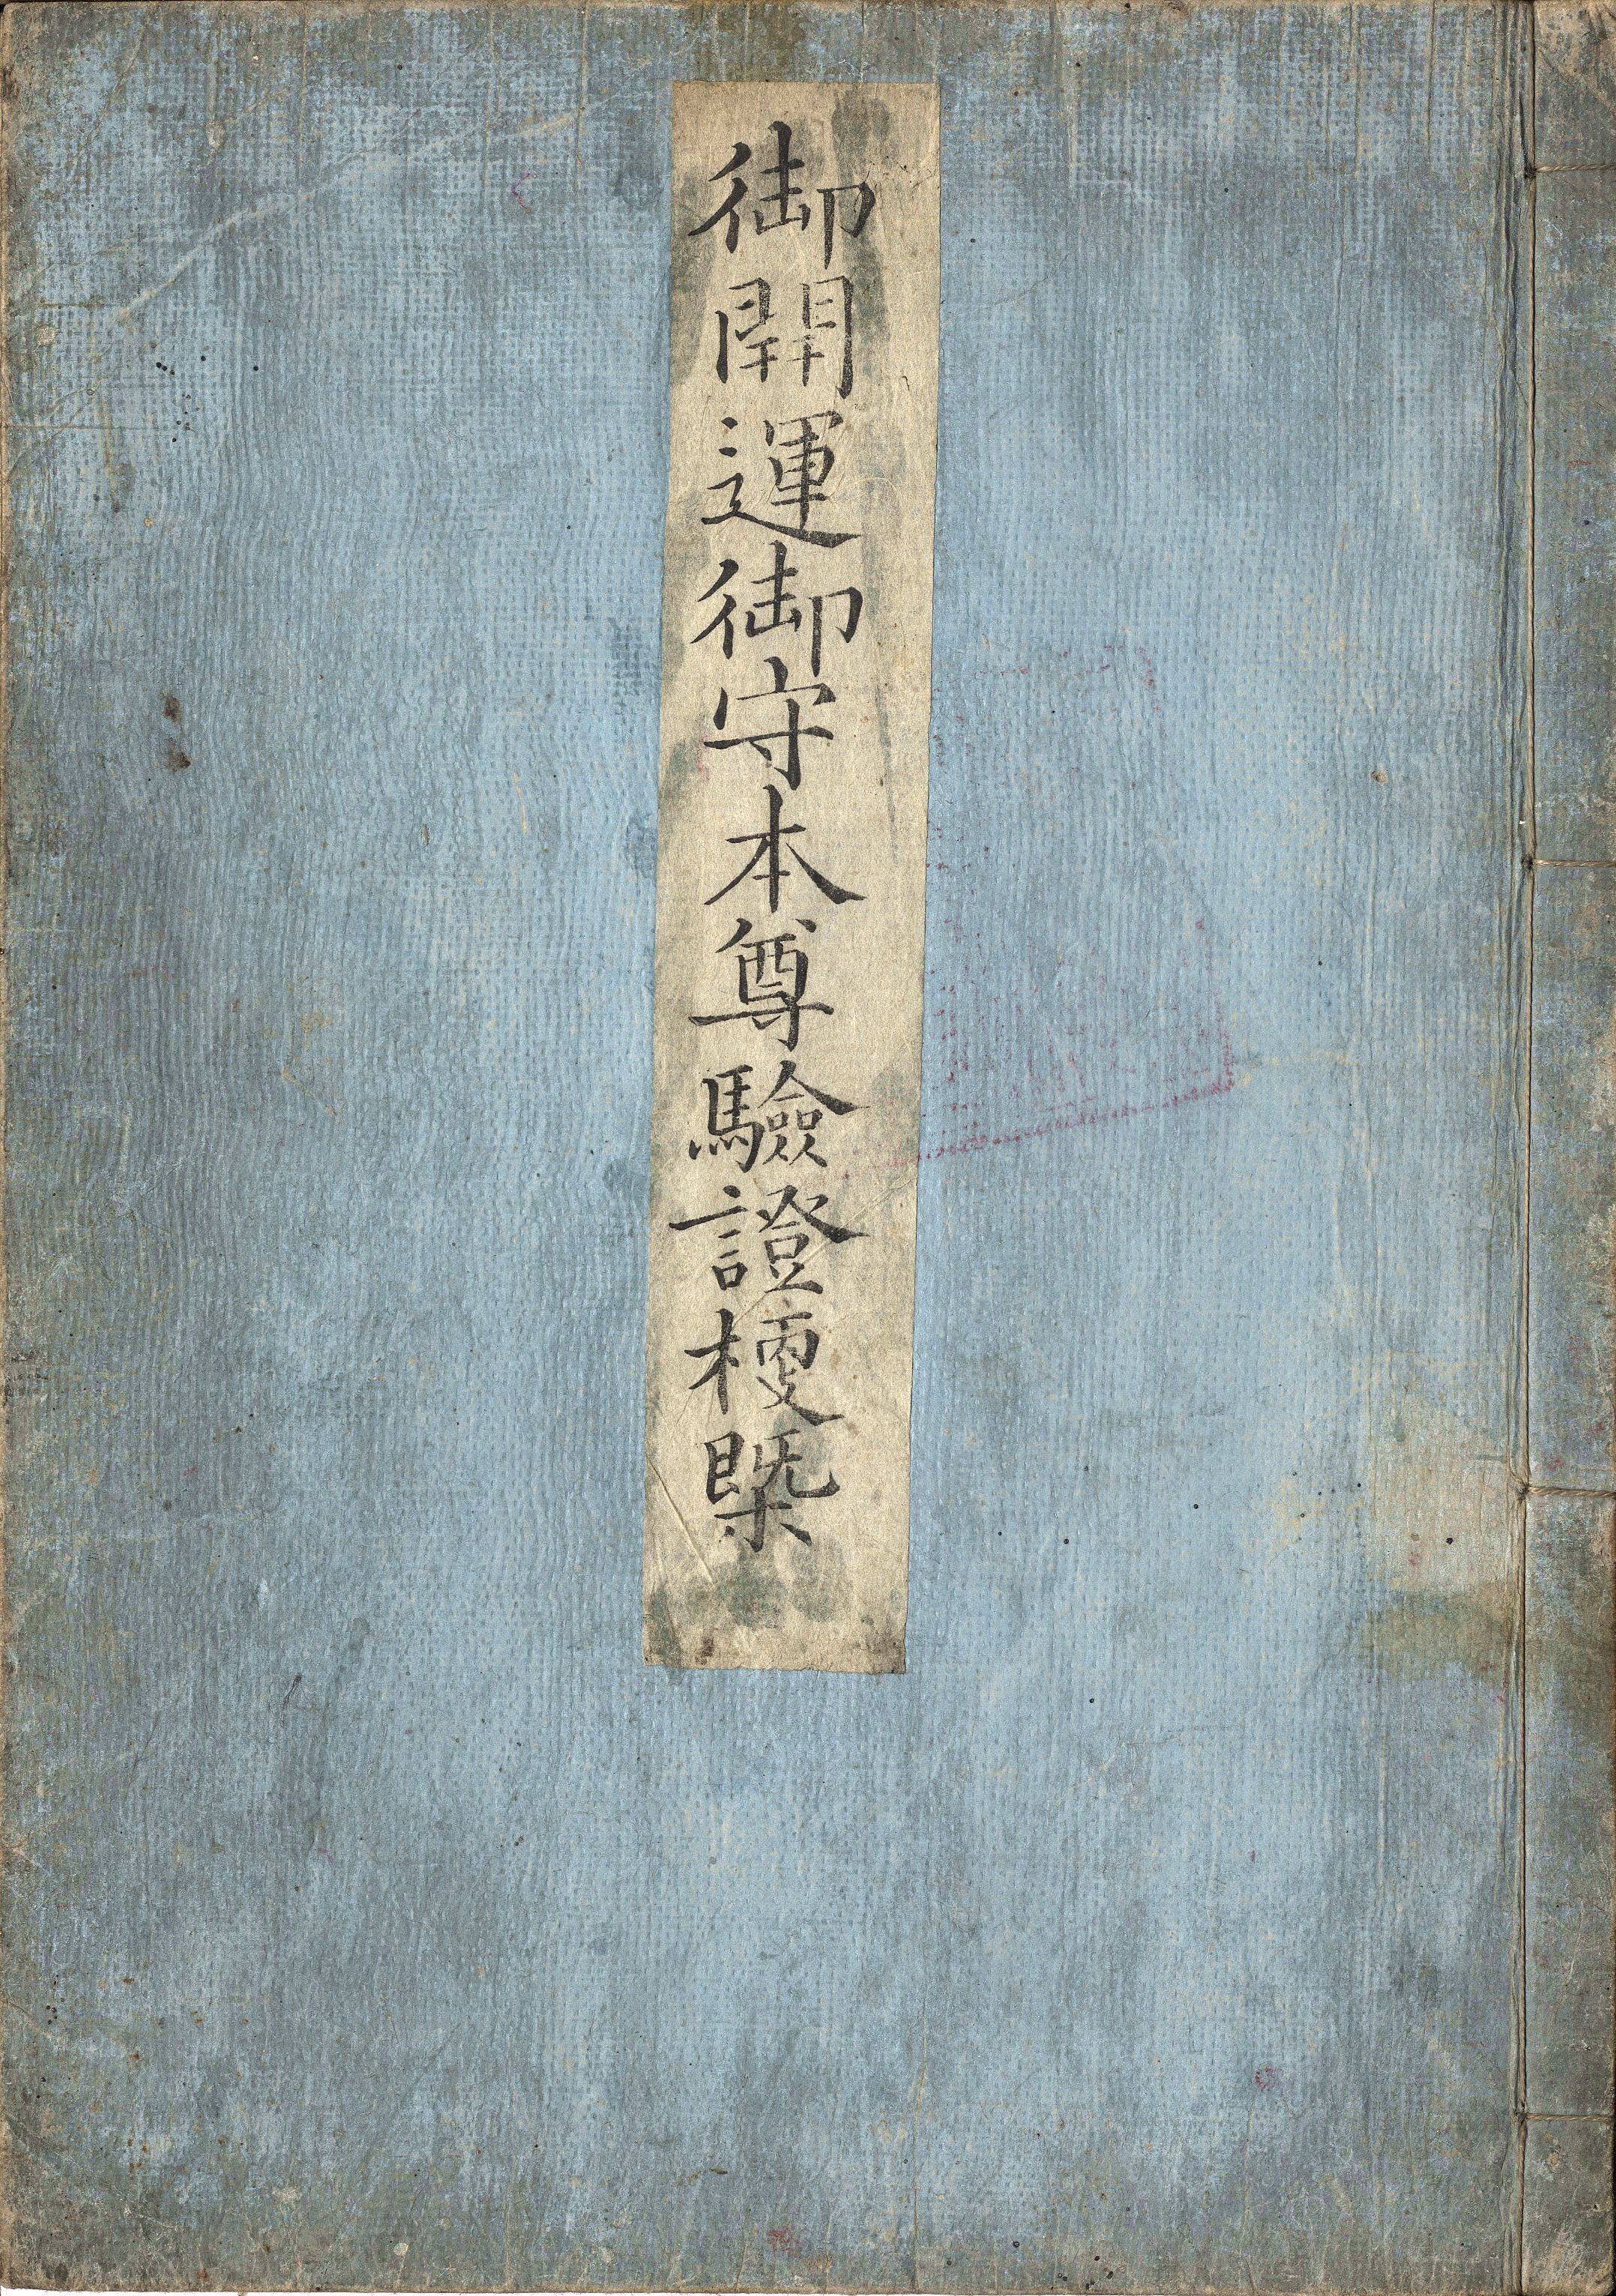 御開運御守本尊驗證梗槩